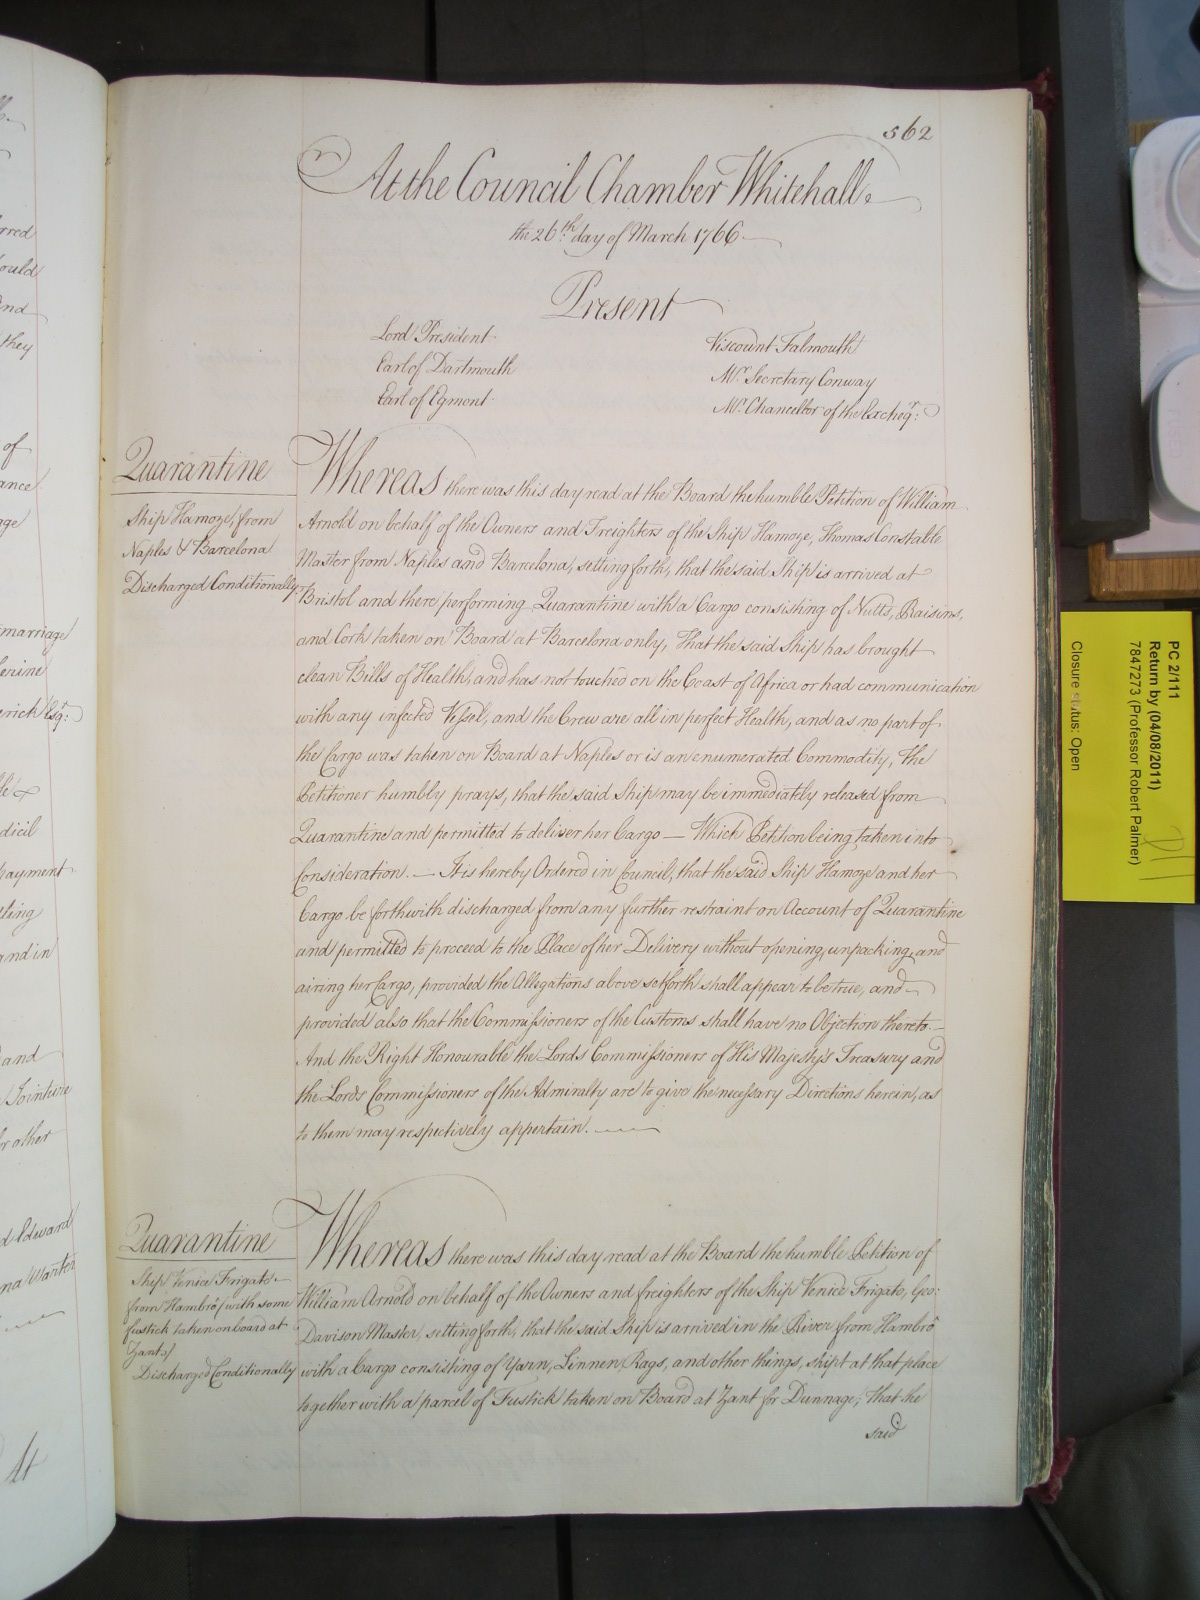 562
At the Council Chamber Whitehall
the 26th day of March 1766
Present
Lord President
Earl of Dartmouth
Earl of Egmont
Viscount Falmouth
Mr. Secretary Conway
Mr. Chancellor of the Excheqr:
Quarantine
Ship Hamoze, from
Naples & Barcelona
Discharged Conditionally.
Whereas there was this day read at the Board the humble Petition of William
Arnold on behalf of the Owners and Freighters of the Ship Hamoze, Thomas Constable
Master from Naples and Barcelona, setting forth, that the said Ship is arrived at
Bristol and there performing Quarantine with a Cargo consisting of Nutts, Raisins,
and Cork taken on Board at Barcelona only, That the said Ship has brought
clean Bills of Health, and has not touched on the Coast of Africa or had communication
with any infected Vessel, and the Crew are all in perfect Health, and as no part of
the Cargo was taken on Board at Naples or is an enumerated Commodity, The
Petitioner humbly prays, that the said Ship may be immediately released from
Quarantine and permitted to deliver her Cargo — Which Petition being taken into
Consideration. — It is hereby Ordered in Council, that the said Ship Hamoze and her
Cargo be forthwith discharged from any further restraint on Account of Quarantine
and permitted to proceed to the Place of her Delivery without opening, unpacking, and
airing her Cargo, provided the Allegations above setforth shall appear to be true, and
provided also that the Commissioners of the Customs shall have no Objection thereto. —
And the Right Honourable the Lords Commissioners of His Majesty's Treasury and
the Lords Commissioners of the Admiralty are to give the necessary Directions herein, as
to them may respectively appertain.
Quarantine
Ship Venice Frigate
from Hambro' (with some
fustick taken on board at
Zant.)
Discharged Conditionally
Whereas there was this day read at the Board the humble Petition of
William Arnold on behalf of the Owners and freighters of the Ship Venice Frigate, Geo:
Davison Master, setting forth, that the said Ship is arrived in the River from Hambro'
with a Cargo consisting of Yarn, Linnen, Rags, and other things, shipt at that place
together with a parcel of Fustick taken on Board at Zant for Dunnage; that the
said
PC 2/111
Return by (04/08/2011)
7847273 (Professor Robert Palmer)
Closure status: Open
rred
ould
and
they
of
ance
age
marriage
erine
erick Esqr:
dicil
payment
tting
and in
and
Jointure
or other
d Edward
na Warter
At